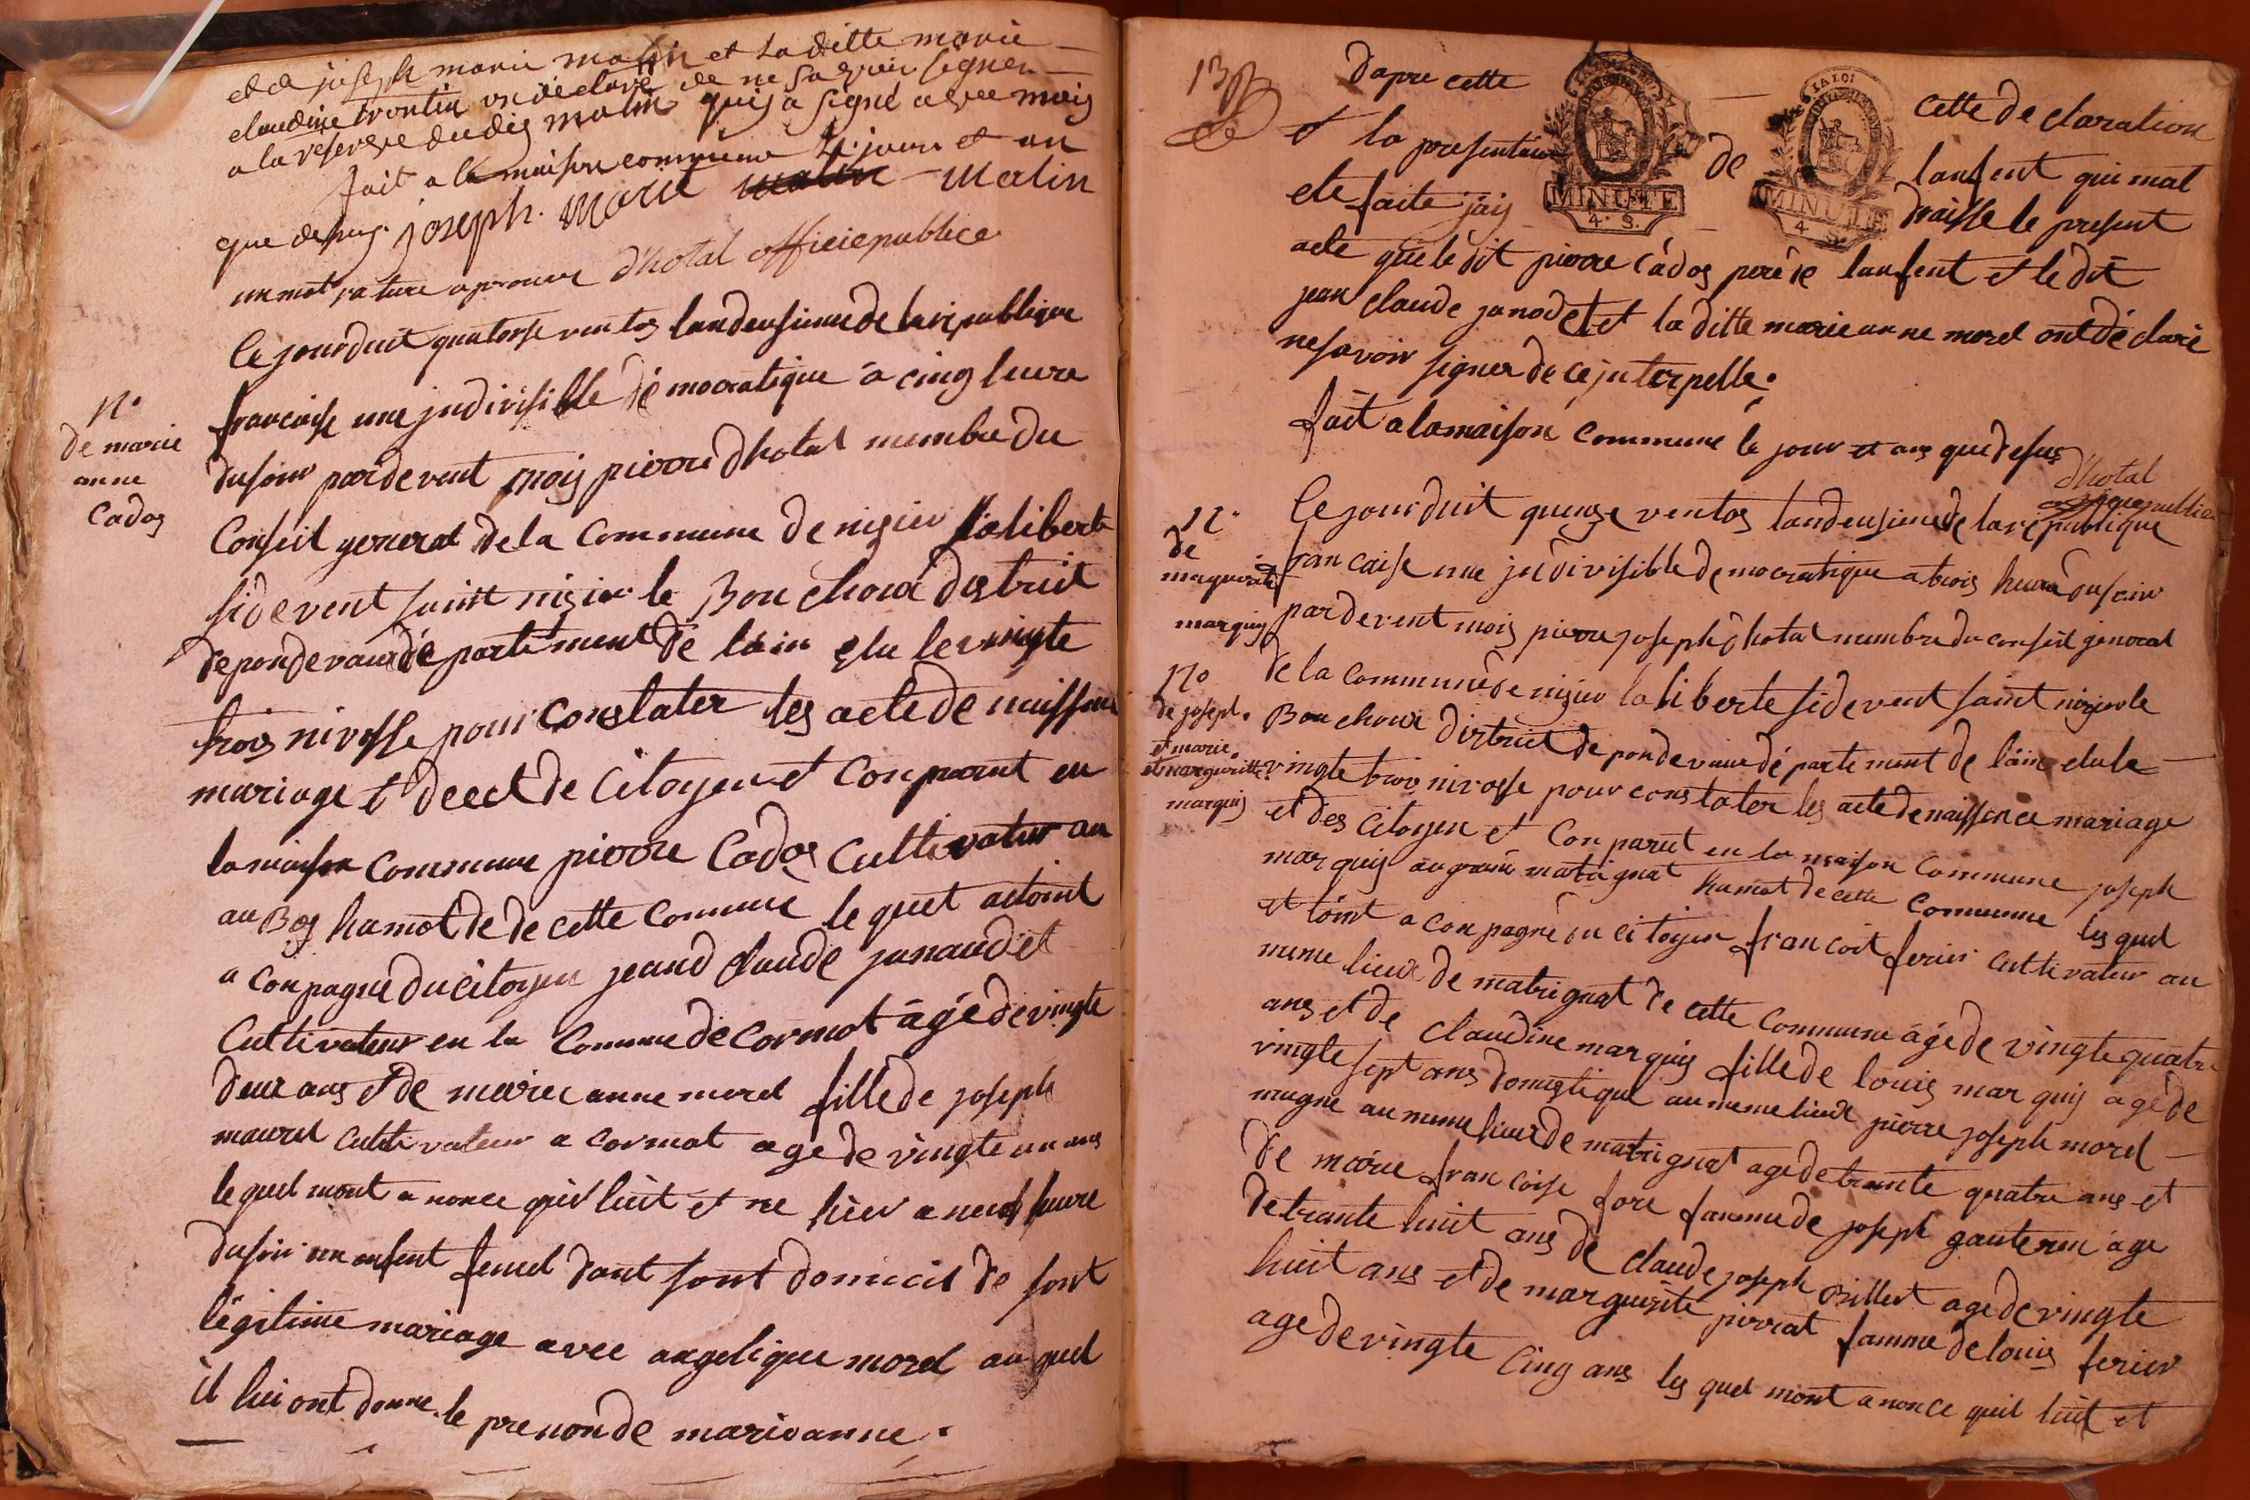 et de joseph marie malin et la ditte marie
claudine trontin on declare de ne savoir signer
a la reserve dudis malin quij a signé avec mois
fait a la maison commune le jour et an
que desus. joseph. marie malin - malin
un mot rature aprouve d'hotal officie publice
Ce jourduit quatorse ventos landeusieme de la republique
N.
de marie
anne
Cados
francaise une jndivisible démocratique a cinq heure
dusoir pardevent mois pierre dhotal membre du
Conseil general de la Commune de nisier la liberte
sidevent saint nisier le Bouchoux distruit
de pondevaux dé partement de lain elu le vingte
trois nivosse pour constater les acte de naissence
mariage et decet de Citoyen et Conparut en
la maison Commune pierre Cados Cultivateur au
au Bos hamot de de cette Commune le quel etoint
a conpagné du Citoyen jeand claude janaudet
Cultivateur en la Commune de cormot âgé de vingte
deux ans et de marie anne morel fille de joseph
maurel cultivateur a cormot age de vingte un ans
le quel mont a nonce quil luit et ne hier a neuf heure
dusoir un enfent femel dant sont domicil de sont
légitime mariage avec angelique morel au quel
il lui ont donne le prenon de marieanne.
13
dapre cette cette de claration
et la presentation de lanfent qui mat
ete faite jaij draisse le present
MINUTE
4. S.
LA LOI
MINUTE
4 S.
acte quie le dit pierre Cados pere de lanfent et le dit
jean claude janodet et la ditte marie anne morel ont dé claré
ne savoir signer de ce jnterpelle.
fait a la maison commune le jour et ans que desus
d'hotal
publice
N.
de
marguerite
marquis
Ce jourduit quense ventos landeusieme de la republique
francaise une jndivisible democratique a trois heure dusoir
pardevent mois pierre joseph dhotal membre du conseil general
N°
de joseph.
et marie.
et marguerite
marquis
de la commune de nisier la liberte sidevent saint nisier le
Bouchoux distruit de pondevaux dé partement de lain elu le
vingte trois nivosse pour constater les acte de naissence mariage
et des Citoyen et Conparut en la maison Commune joseph
marquis au grand matrignat hamot de cette Commune les quel
et toint a conpagné du citoyen francoit ferier Cultivateur au
meme lieux de matrignat de cette Commune age de vingte quatre
ans et de claudine marquis fille de louis marquis age de
vingte sept ans domestique au meme lieux pierre joseph morel
magne au meme lieux de matrignat age de trante quatre ans et
de marie francoise fore famme de joseph gauteren age
de trante huit ans de claude joseph Billet age de vingte
huit ans et de marguerite pirrat famme de louis ferier
age de vingte cinq ans les quel mont a nonce quil luit et